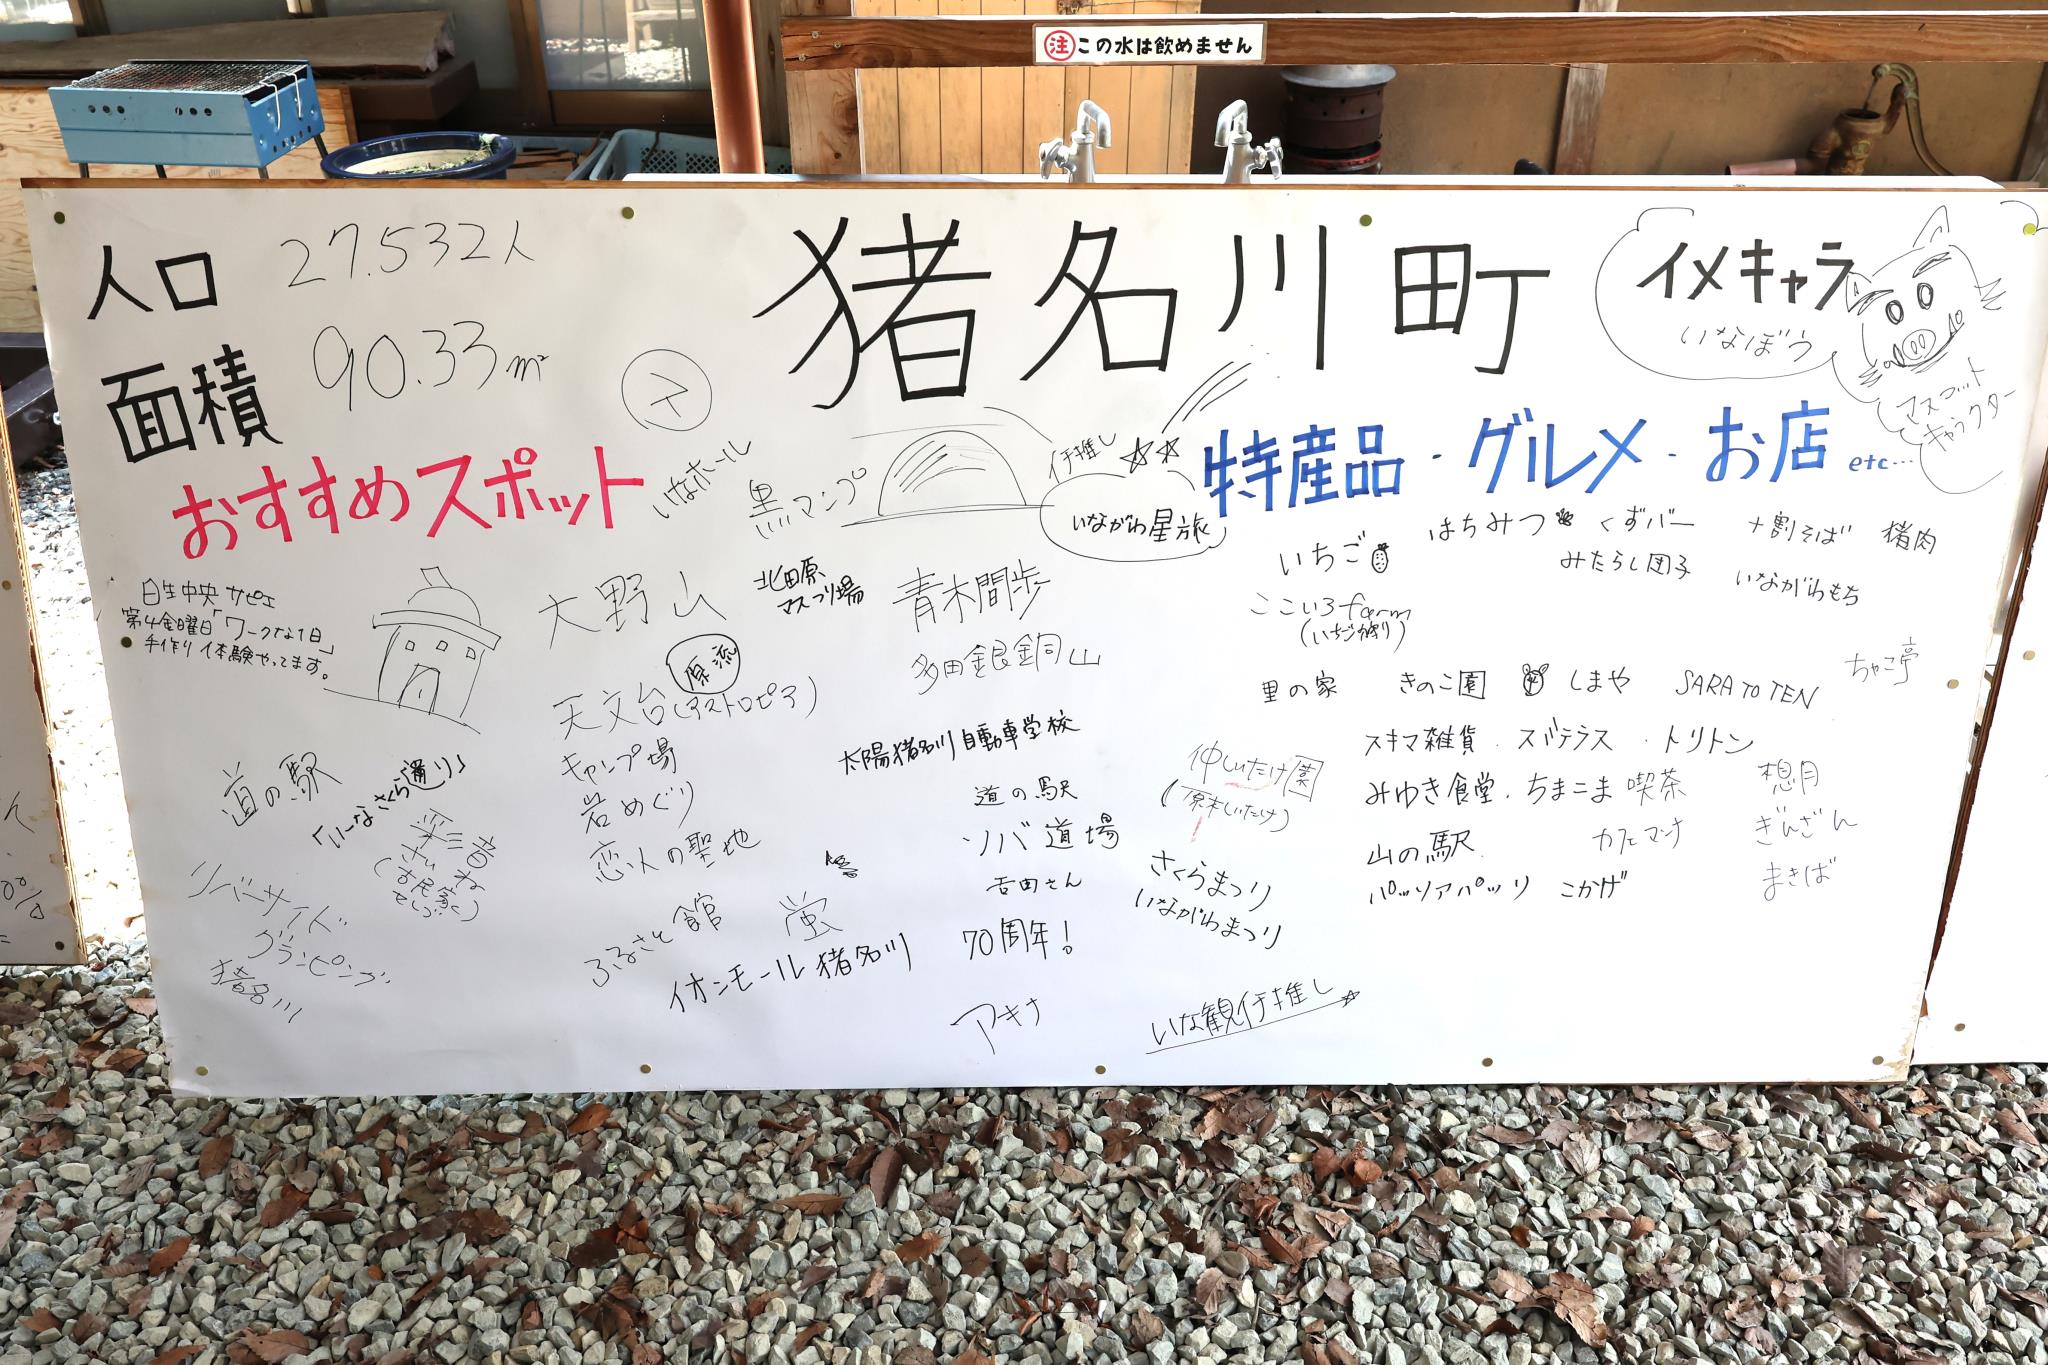 注 この水は飲めません
人口 27.532人
面積 90.33m²
猪名川町
イメキャラ
いなぼう
マスコット
キャラクター
おすすめスポット
いなホール
黒マンプ
イチ推し
いながわ星旅
特産品・グルメ・お店 etc…
日生中央 サピエ
第4金曜日「ワークな1日」
手作り体験やってます。
大野山
北田原
マスつり場
青木間歩
原流
多田銀銅山
天文台(アストロピア)
キャンプ場
岩めぐり
恋人の聖地
太陽猪名川自動車学校
道の駅
「いーなさくら通り」
彩音
さいね
(古民家
リバーサイド
グランピング
猪名川
ふるさと館
蛍
イオンモール猪名川
道の駅
ソバ道場
吉田さん
70周年!
アキナ
さくらまつり
いながわまつり
いな観イチ推し
いちご
はちみつ
くずバー
十割そば
猪肉
みたらし団子
いながわもち
ここいろfarm
(いちご狩り)
里の家
きのこ園
しまや
SARA TO TEN
ちゃこ亭
仲しいたけ園
(原木しいたけ)
スキマ雑貨・スバテラス・トリトン
みゆき食堂・ちまこま喫茶
想月
山の駅
カフェマンナ
ぎんざん
パッソアパッソ
こかげ
まきば